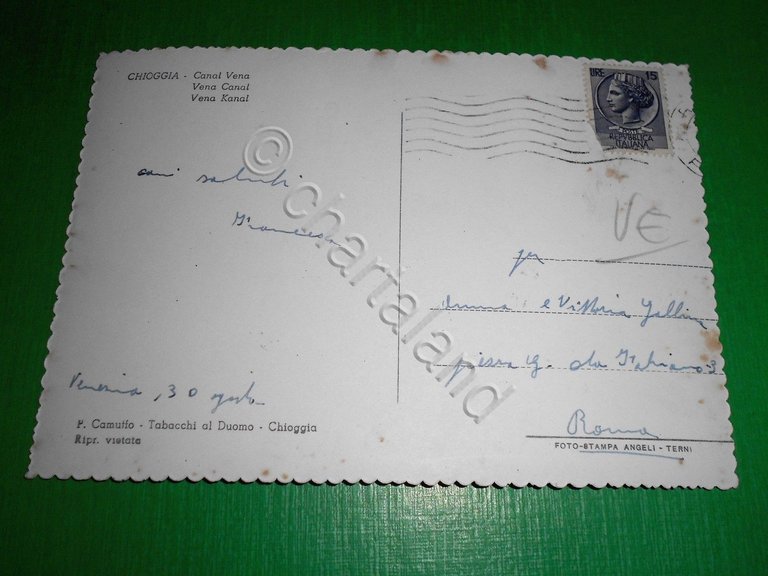 CHIOGGIA - Canal Vena
Vena Canal
Vena Kanal
LIRE 15
REPVBBLICA
ITALIANA
cari saluti
Francesco
VE
per
e Vittoria
Venezia, 30 agosto
Roma
P. Camuffo - Tabacchi al Duomo - Chioggia
Ripr. vietata
FOTO-STAMPA ANGELI - TERNI
© chartaland